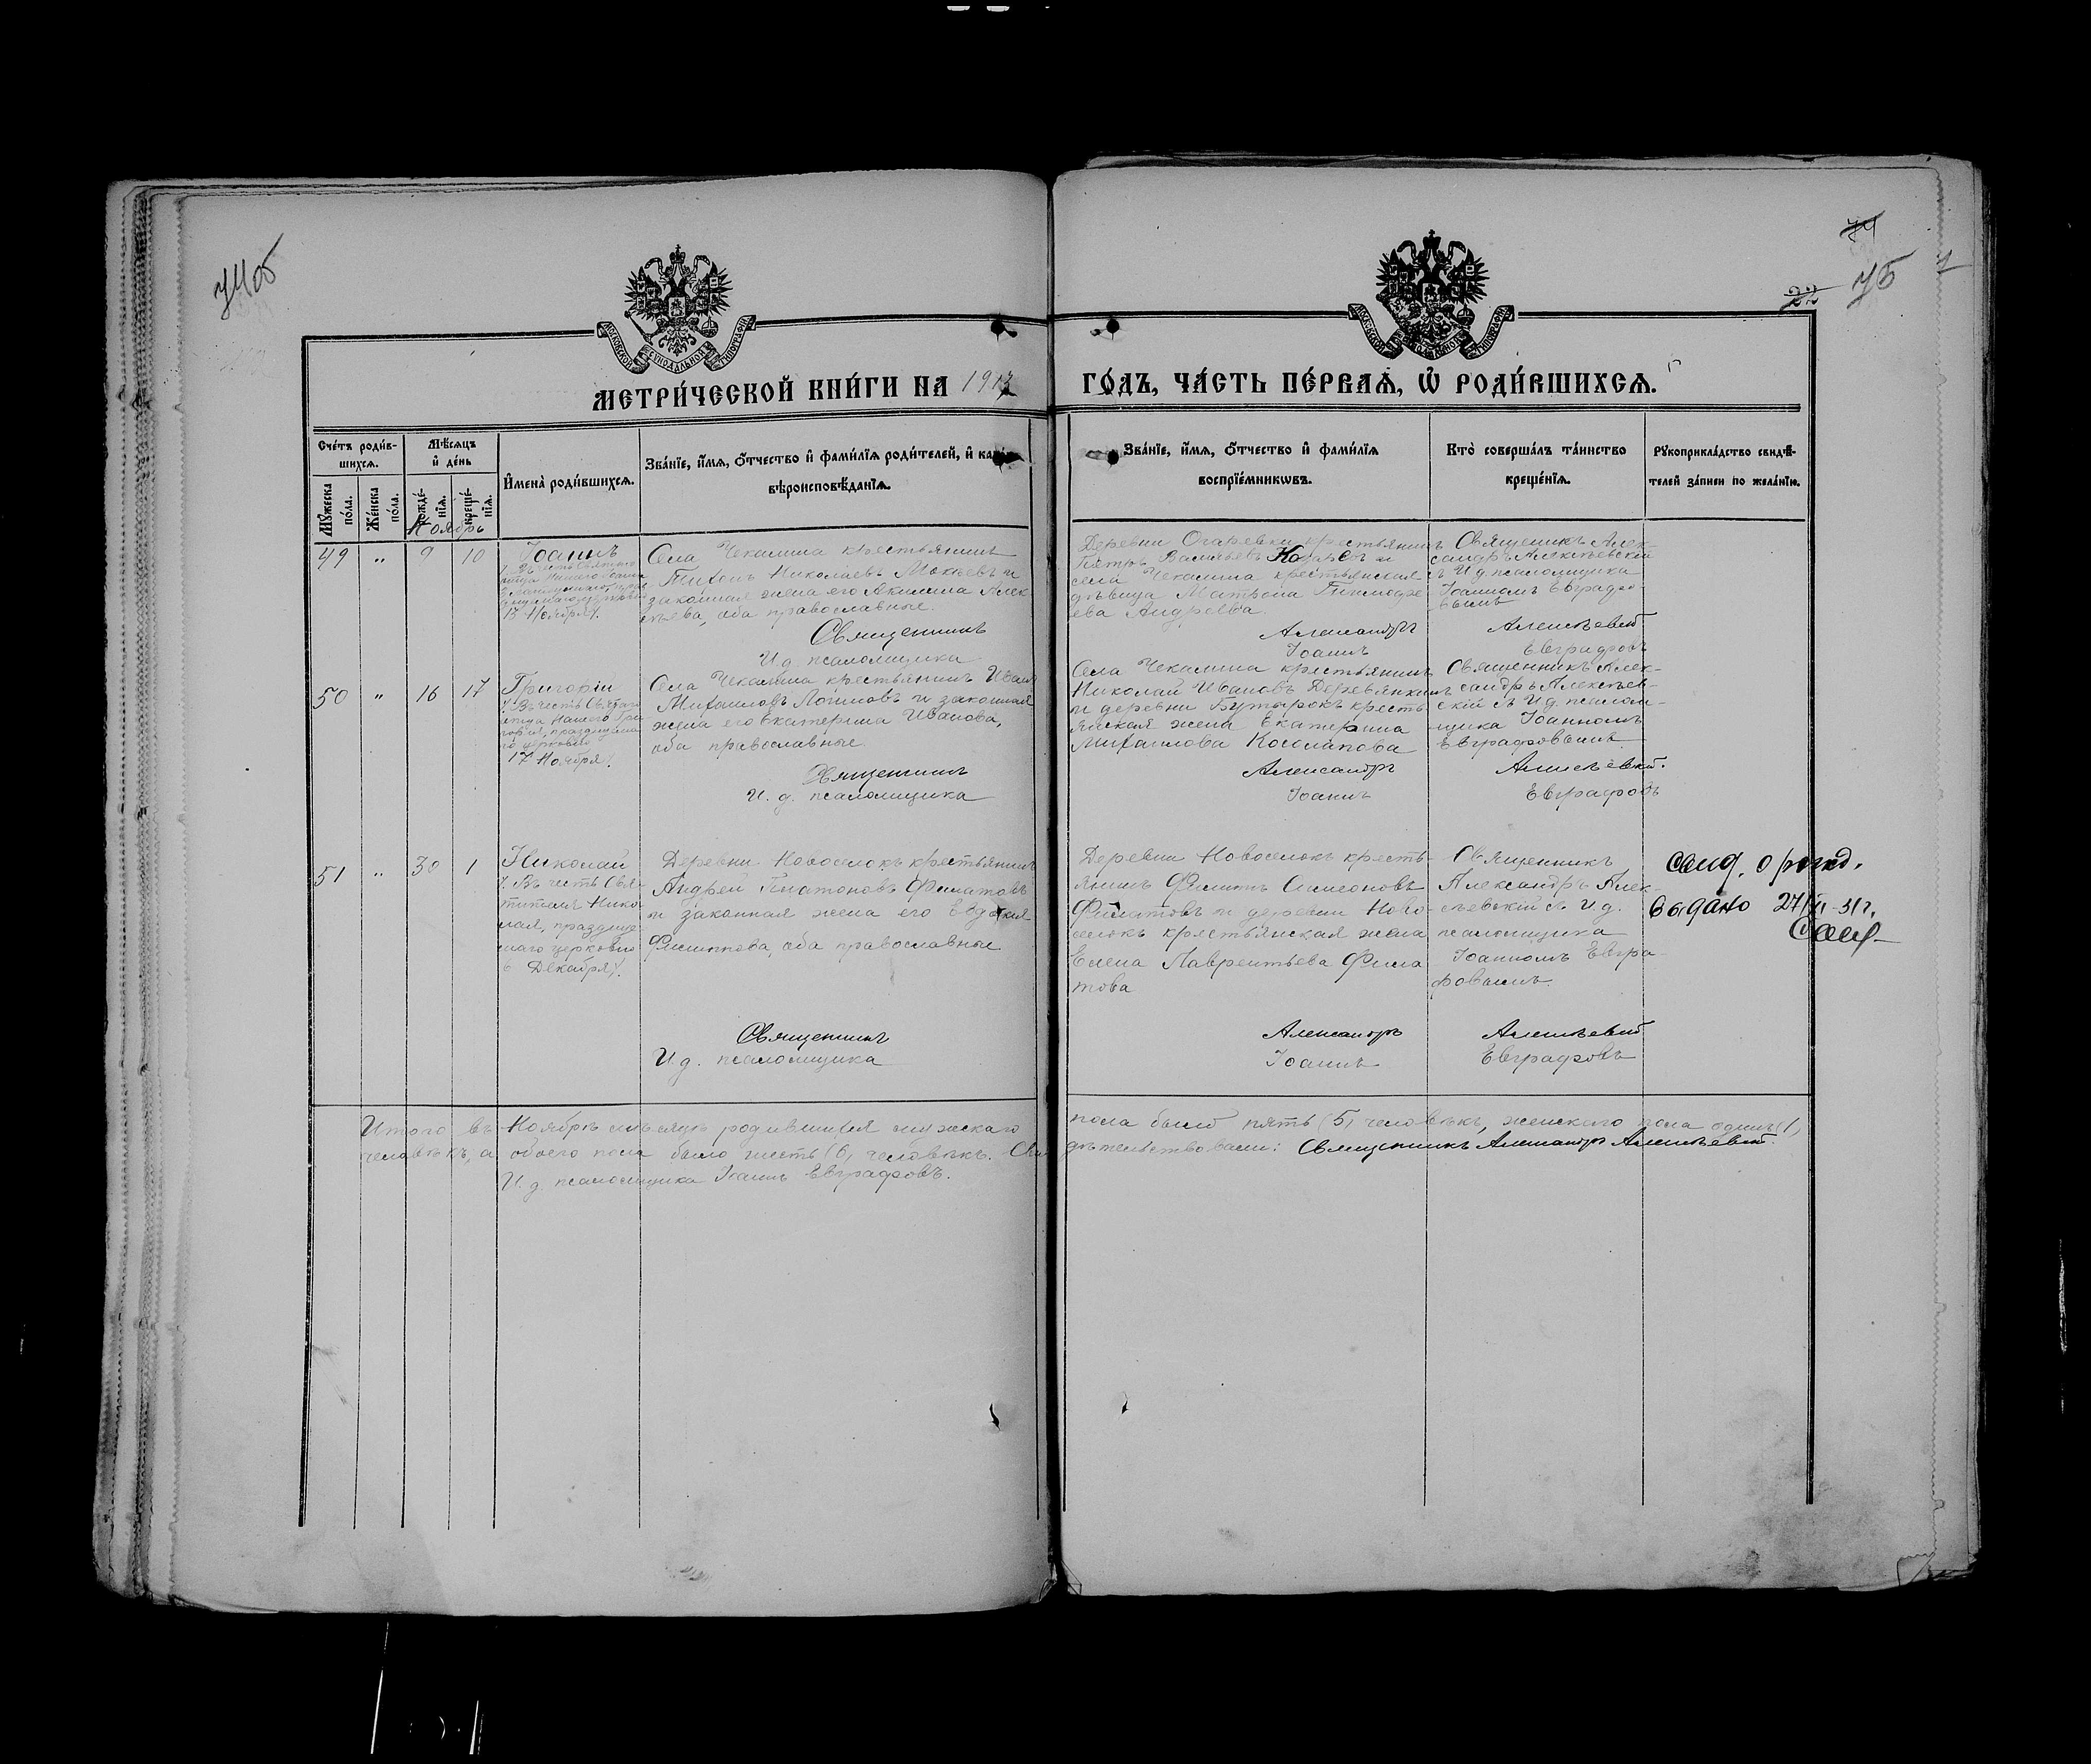 74об
74
75
22
МЕТРИ́ЧЕСКОЙ КНИ́ГИ НА 1913
ГО́ДЪ, ЧА́СТЬ ПЕ́РВАЯ, Ѡ РОДИ́ВШИХСЯ.
Сче́тъ роди́в-
шихся.
Мѣ́сяцъ
и де́нь
Му́жеска
по́ла.
Же́нска
по́ла.
рожде́-
нїя.
креще́-
нїя.
И҆мена̀ роди́вшихся.
Зва́нїе, и҆́мя, ѻ҆́тчество и҆ фами́лїя роди́телей, и҆
вѣроисповѣ́данїя.
Зва́нїе, и҆́мя, ѻ҆́тчество и҆ фами́лїя
воспрїе́мникѡвъ.
Кто̀ соверша́лъ та́инство
креще́нїя.
Рꙋкоприкла́дство свидѣ́-
телей за́писи по жела́нїю.
Ноябрь
49 " 9 10
Іоаннъ
17 Ноября).
Села Чекалина крестьянинъ
Тихонъ Николаевъ Мокѣевъ и
законная жена его Акилина Алек-
сѣева, оба православные.
Священникъ
И. д. псаломщика
Деревни Огаревки крестьянинъ
Петръ Васильевъ и
села Чекалина крестьянская
дѣвица Матрона Тимофе-
ева Андреева.
Александръ
Іоаннъ
Священникъ Алек-
сандръ Алексѣевскій
съ И. д. псаломщика
Іоанномъ Евграфо-
вымъ
Алексѣевскій.
Евграфовъ
50 " 16 17
Григорій
(Въ честь Святаго
отца Нашего Гри-
горія, празднуема-
го церковію
17 Ноября).
Села Чекалина крестьянинъ Иванъ
Михаиловъ Логиновъ и законная
жена его Екатерина Иванова,
оба православные.
Священникъ
И. д. псаломщика
Села Чекалина крестьянинъ
Николай Ивановъ Деревянкинъ
и деревни Бутырокъ кресть-
янская жена Екатерина
Михаилова Косолапова
Александръ
Іоаннъ
Священникъ Алек-
сандръ Алексѣев-
скій съ И. д. псалом-
щика Іоанномъ
Евграфовымъ.
Алексѣевскій.
Евграфовъ
51 " 30 1
Николай
(Въ честь Свя-
тителя Нико-
лая, празднуе-
маго церковію
6 Декабря).
Деревни Новоселокъ крестьянинъ
Андрей Платоновъ Филатовъ
и законная жена его Евдокія
Филиппова, оба православные
Священникъ
И. д. псаломщика
Деревни Новоселокъ кресть-
янинъ Филиппъ Симеоновъ
Филатовъ и деревни Ново-
селокъ крестьянская жена
Елена Лаврентьева Фила
това
Александръ
Іоаннъ
Священникъ
Александръ Алек-
сѣевскій съ И. д.
псаломщика
Іоанномъ Евгра-
фовымъ.
Алексѣевскій
Евграфовъ
Свид. о рожд.
выдано
Итого въ Ноябрѣ мѣсяцѣ родившихся мужскаго
человѣкъ, а обоего пола было шесть (6) человѣкъ. Сви-
И. д. псаломщика Іоаннъ Евграфовъ.
пола было пять (5) человѣкъ, женскаго пола одинъ (1)
дѣтельствовали: Священникъ Александръ Алексѣевскій.